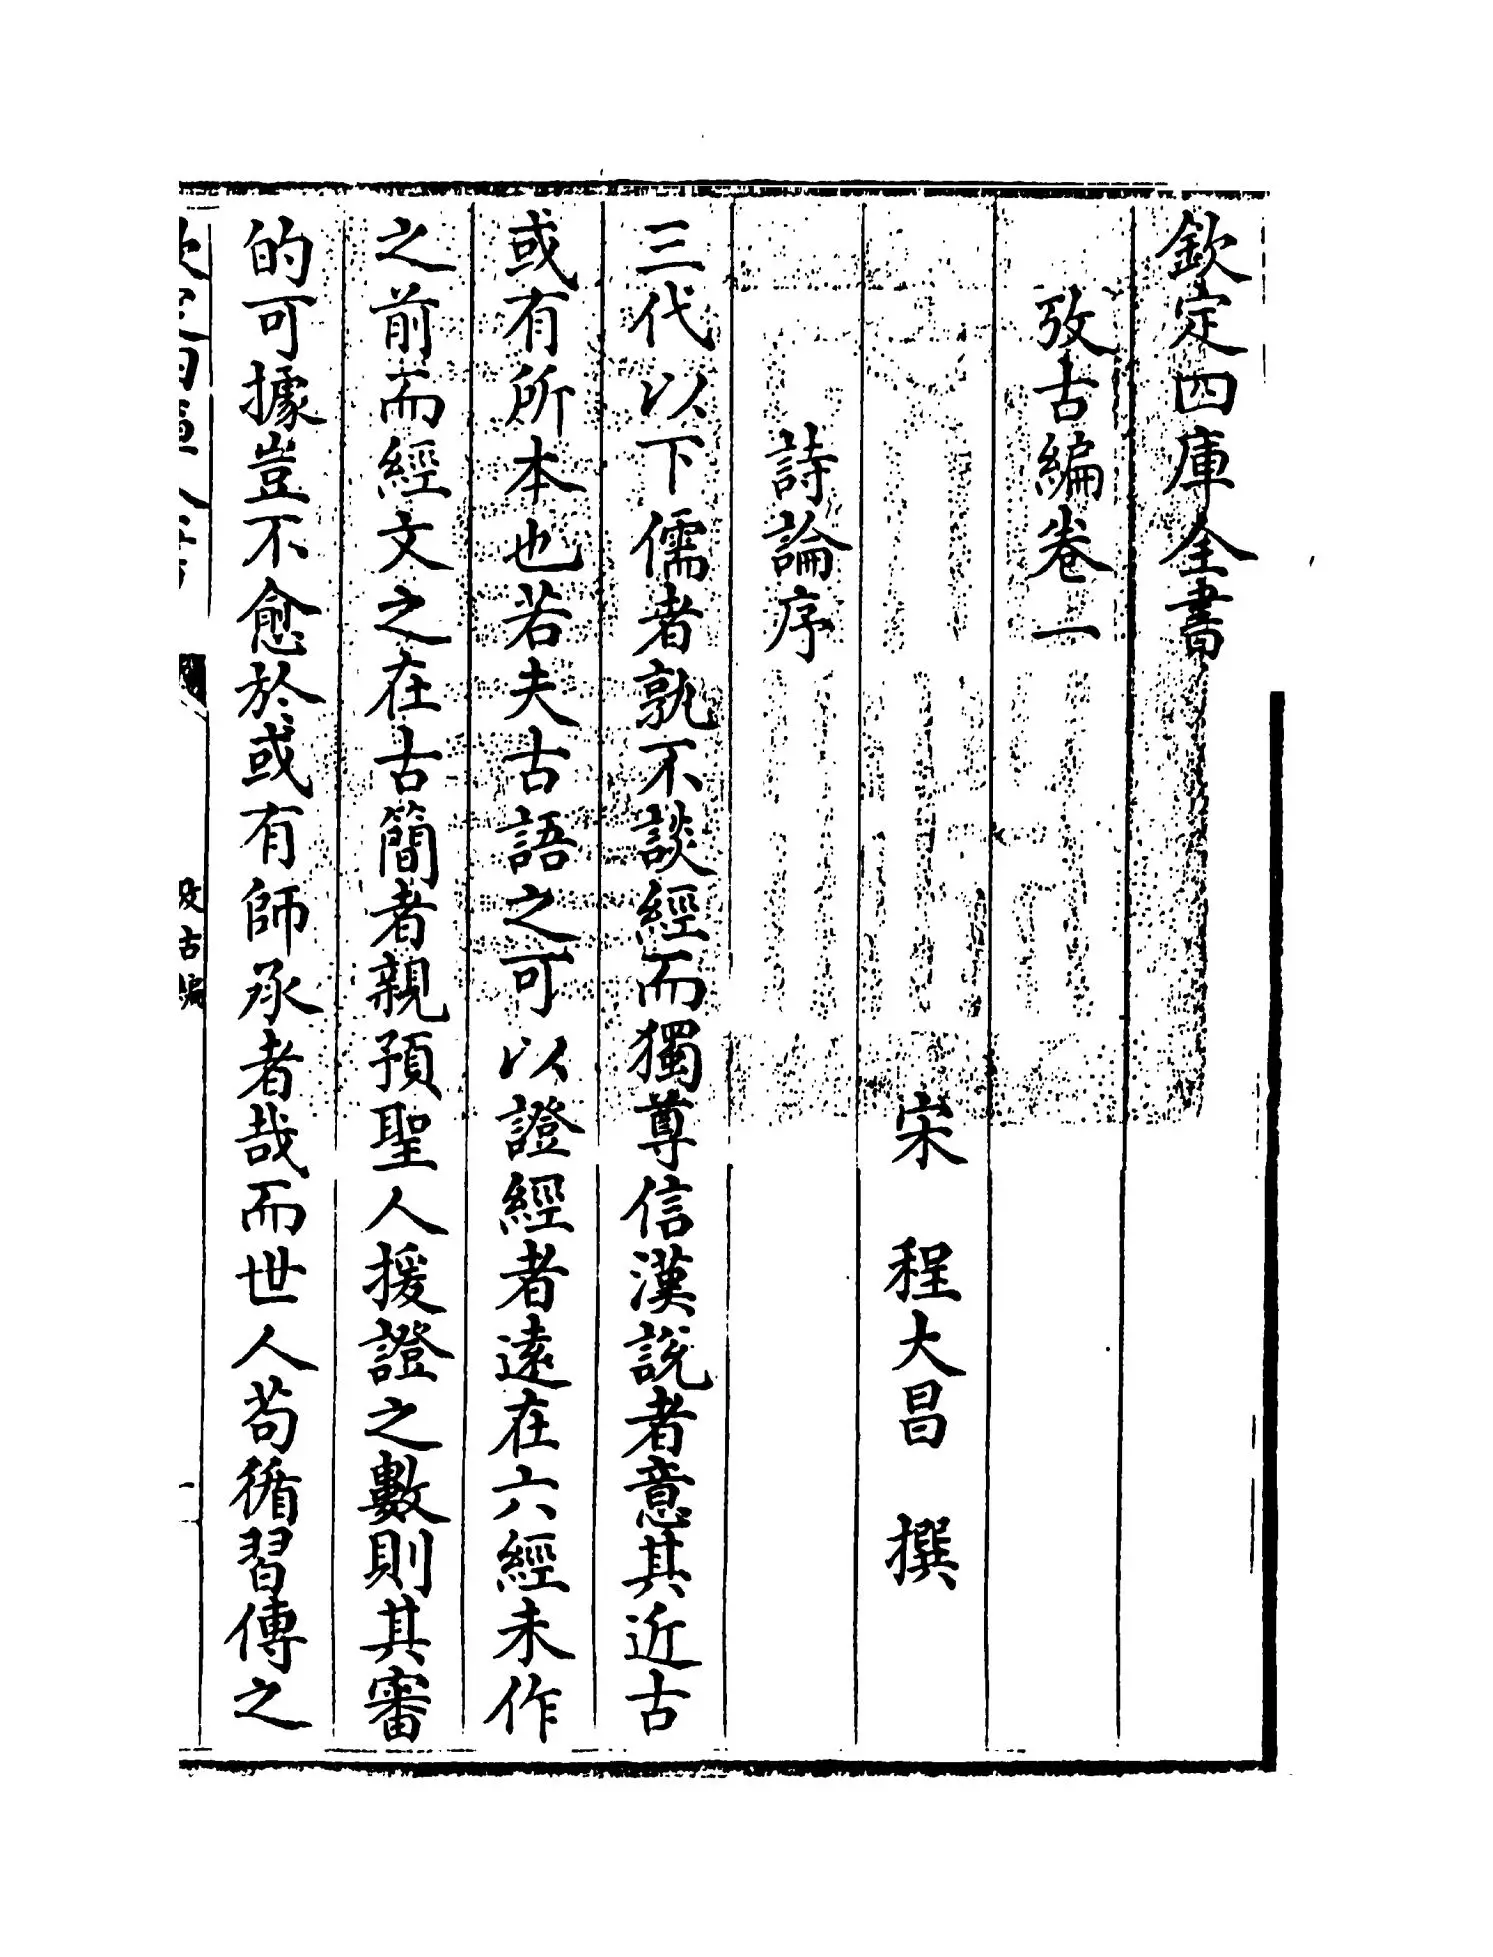 欽定四庫全書
攷古編卷一
宋 程大昌 撰
詩論序
三代以下儒者孰不談經而獨尊信漢說者意其近古
或有所本也若夫古語之可以證經者遠在六經未作
之前而經文之在古簡者親預聖人援證之數則其審
的可據豈不愈於或有師承者哉而世人苟循習傳之
攷古編